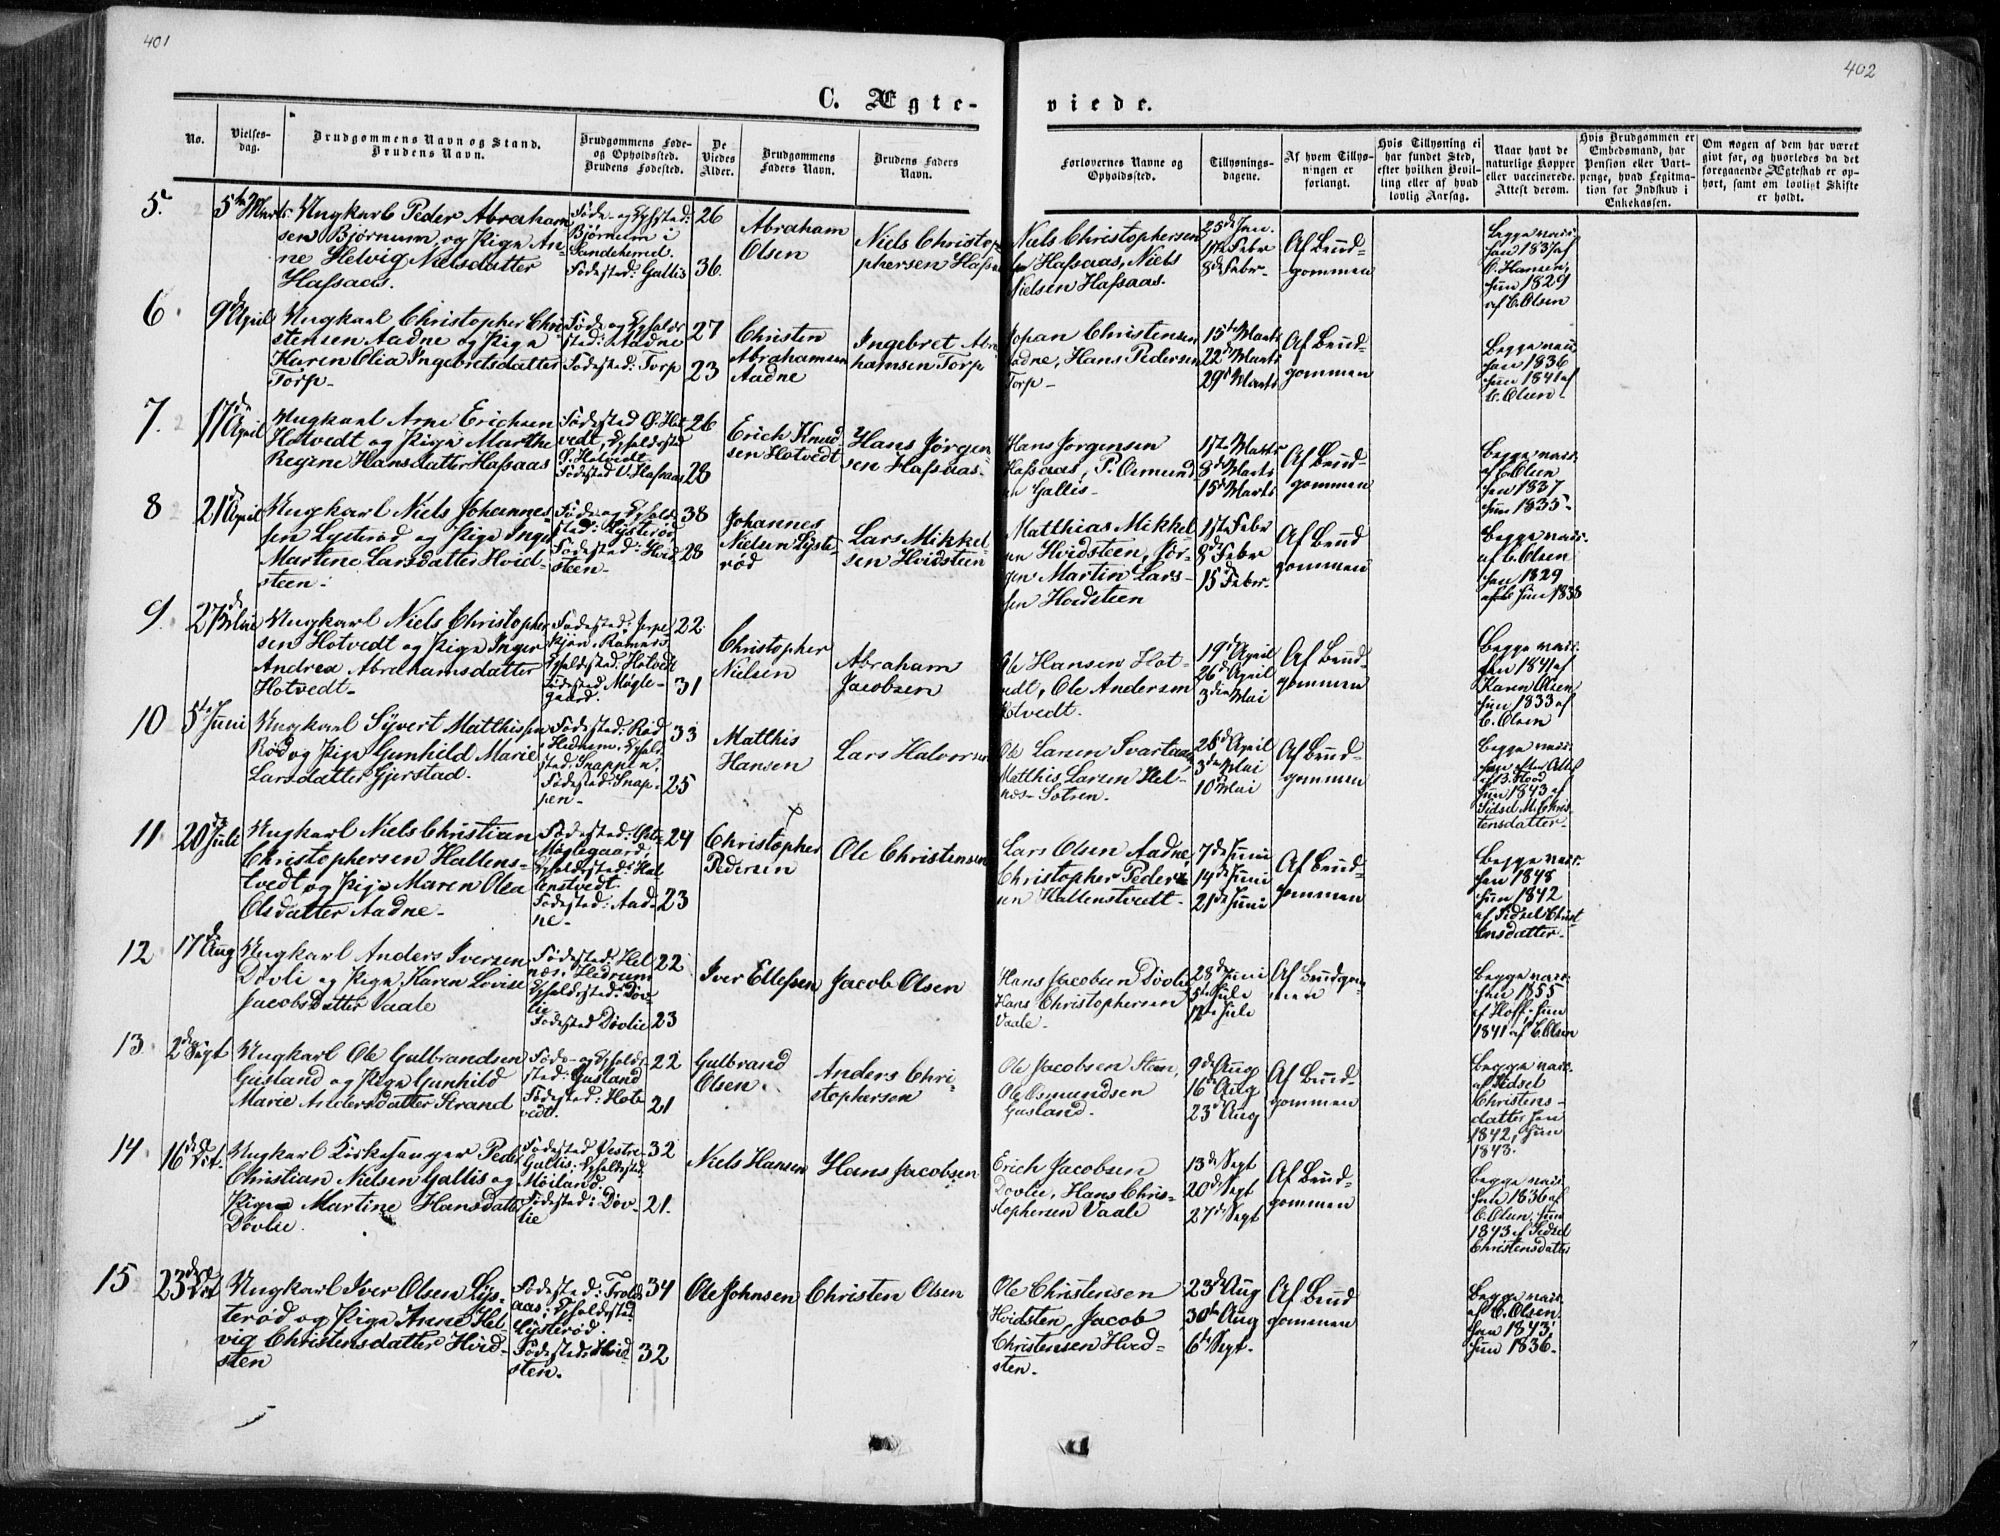 401
402
C. Ægte-
viede.
No.
Vielses-
dag.
Brudgommens Navn og Stand.
Brudens Navn.
Brudgommens Føde-
og Opholdssted.
Brudens Fødested.
De
Viedes
Alder.
Brudgommens
Faders Navn.
Brudens Faders
Navn.
Forlovernes Navne og
Opholdssted.
Tillysnings-
dagene.
Af hvem Tillys-
ningen er
forlangt.
Hvis Tillysning ei
har fundet Sted,
efter hvilken Bevil-
ling eller af hvad
lovlig Aarsag.
Naar havt de
naturlige Kopper
eller vaccinerede.
Attest derom.
Hvis Brudgommen er
Embedsmand, har
Pension eller Vart-
penge, hvad Legitima-
tion for Indskud i
Enkekassen.
Om nogen af dem har været
givt før, og hvorledes da det
foregaaende Ægteskab er op-
hørt, samt om lovligt Skifte
er holdt.
5.
5te Marts
Ungkarl Peder Abraham
sen Bjørnum og Pige An-
ne Helvig Nielsdatter
Hafsaas.
Føde- og Opholdssted:
Bjørnum i
Sandeherred.
Fødested: Gallis
26
36
Abraham
Olsen
Niels Christop-
phersen Hafsa
Niels Christophersen
Hafsaas, Niels
Nielsen Hafsaas.
25de Jan.
1ste Febr
8de Febr
Af Brud-
gommen
Begge vacc.
han 1837 af
C. Hansen,
hun 1829
af C. Olsen
6
9de April
Ungkarl Christopher Chri-
stensen Aadne og Pige
Karen Olia Ingebretsdatter
Torp-
Føde og Opholds-
sted: Aadne
Fødested: Torp
27
23
Christen
Abrahamsen
Aadne
Ingebret Abra
hamsen Torp
Johan Christensen
Aadne, Hans Pedersen
Torp-
15de Marts
22de Marts
29de Marts
Af Brud-
gommen
Begge vacc.
han 1836
hun 1841 af
C. Olsen-
7.
17de April
Ungkarl Arne Erichsen
Hotvedt og Pige Marthe
Regine Hansdatter Hafsaas
Fødested Ø. Hot
vedt, Opholdssted
Ø. Hotvedt.
Fødested V. Hafsaas
26
28
Erich Knud
sen Hotvedt
Hans Jørgen-
sen Hafsaas.
Hans Jørgensen
Hafsaas, P. Osmund
Gallis-
1ste Marts
8de Marts
15de Marts
Af Brud-
gommen
Begge vacc.
af C. Olsen
han 1837
hun 1835-
8
21de April
Ungkarl Niels Johannes-
sen Lysterød og Pige Inger
Martine Larsdatter Hvid-
steen-
Føde og Opholds-
sted: Lysterød,
Fødested: Hvid
steen-
38
28
Johannes
Nielsen Lyste-
rød
Lars Mikkel-
sen Hvidsteen
Matthias Mikkel
sen Hvidsteen, Jør-
gen Martin Lars-
sen Hvidsteen
1ste Febr
8de Febr
15de Febr.
Af Brud
gommen
Begge vacc.
af C. Olsen
han 1829
hun 1838
9.
27de Mai
Ungkarl Niels Christopher
sen Hotvedt og Pige Inger
Andrea Abrahamsdatter
Hotvedt-
Opholdssted: Hotvedt
Fødested Møgle-
gaard.
22
31
Christopher
Nielsen
Abraham
Jacobsen
Ole Hansen Hot-
vedt, Ole Andersen
Hotvedt.
19de April
26de April
3die Mai
Af Brud-
gommen
Begge vacc.
han 1841 af
Karen Olsen
hun 1833 af
C. Olsen
10
5te Juni
Ungkarl Syvert Matthisen
Rød og Pige Gunhild Marie
Larsdatter Gjerstad.
Fødested: Rød
i Hedrum. Ophold-
sted: Snappen,
Fødested: Snap-
pen-
33
25
Matthis
Hansen
Lars Halvorsen
Ole Larsen Svartaas
Matthis Larsen Hel-
næs-Sotsen.
26de April
3die Mai
10de Mai
Af Brud-
gommen
Begge vacc.
han efter Attest
hun 1843 af
Sidsel M. Chris
tensdatter-
11.
20de Juli
Ungkarl Niels Christian
Christophersen Hallens-
tvedt og Pige Maren Olea
Olsdatter Aadne-
Fødested: Østre
Møglegaard,
Opholdssted: Hal
lenstvedt.
Fødested: Aad-
ne-
24
23
Christopher
Pedersen
Ole Christensen
Lars Olsen Aadne,
Christopher Peder
sen Hallenstvedt-
7de Juni
14de Juni
21de Juni
Af Brud-
gommen
Begge vacc.
han 1848
hun 1842
af Sidsel Christ
ensdatter-
12
17de Aug
Ungkarl Anders Iversen
Døvli og Pige Karen Lovise
Jacobsdatter Vaale
Fødested: Hel
næs. Hedrum
Opholdssted: Døv-
lie
Fødested Døvlie
22
23
Iver Ellefsen
Jacob Olsen
Hans Jacobsen Døvlie
Hans Christophersen
Vaale-
28de Juni
5te Juli
12te Juli
Af Brudgom
men
Begge vacc.
han 1855
af Hoff. hun
1841 af C. Olsen
13
2den Sept
Ungkarl Ole Gulbrandsen
Gusland og Pige Gunhild
Marie Andersdatter Strand
Føde- og Opholds-
sted: Gusland
Fødested: Hot-
vedt.
22
21
Gulbrand
Olsen.
Anders Chri-
stophersen
Ole Jacobsen Steen,
Ole Osmundsen
Gusland.
9de Aug
16de Aug
23de Aug
Af Brud-
gommen
Begge vacc.
af Sidsel
Christens-
datter, han
1842, hun
1843.
14
16de Oct.
Ungkarl Kirkesanger Peder
Christian Nielsen Gallis og
Pige Martine Hansdatter
Døvlie.
Fødested Vestre
Gallis. Opholdssted
Møiland.
Fødested: Døv-
lie
32
21.
Niels Hansen
Hans Jacobsen
Erich Jacobsen
Døvlie, Hans Chris-
tophersen Vaale
13de Sept
20de Sept
27de Sept
Af Brud-
gommen
Begge vacc.
han 1836 af
C. Olsen, hun
1843 af Sidsel
Christensdatter
15
23de Oct
Ungkarl Iver Olsen Lys-
terød og Pige Anne Hel-
vig Christensdatter Hvid-
sten
Fødested: Trolds
aas: Opholdssted
Lysterød.
Fødested: Hvid-
sten.
34
32
Ole Johnsen
Christen Olsen
Ole Christensen
Hvidsten, Jacob
Christensen Hvid-
sten.
23de Aug
30te Aug
6te Sept.
Af Brud
gommen
Begge vacc.
af C. Olsen,
han 1843,
hun 1836.